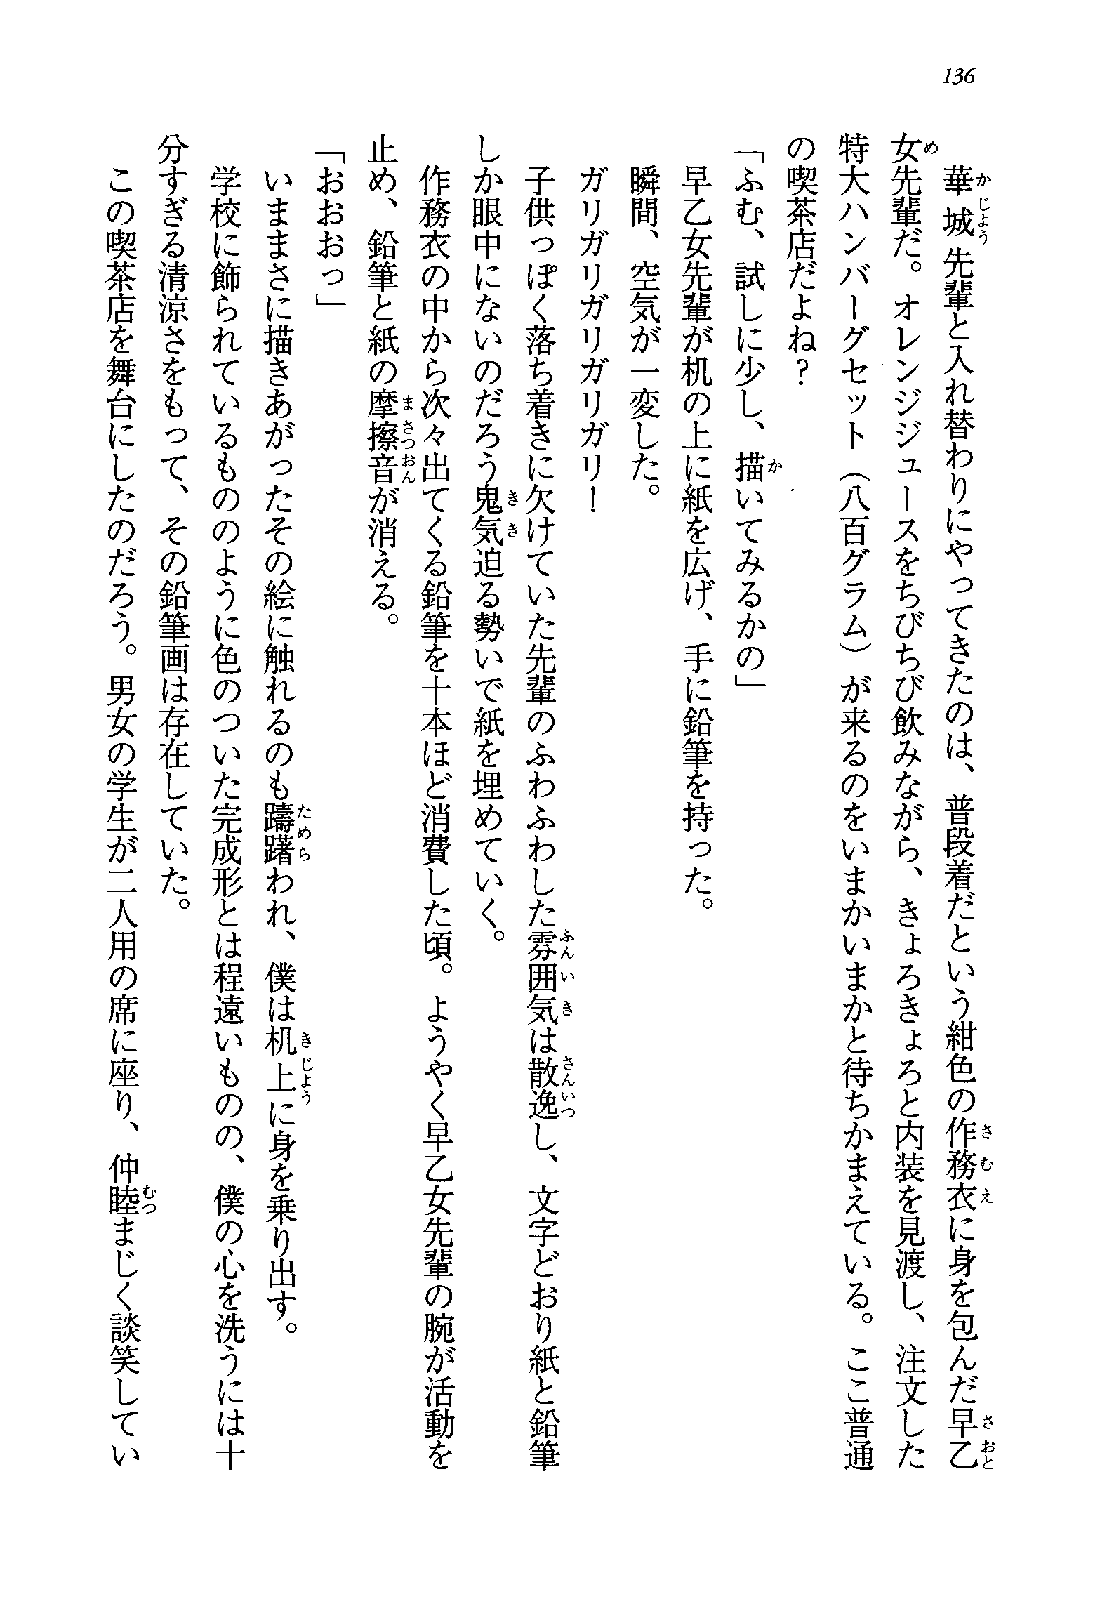 136
　華城先輩と入れ替わりにやってきたのは、普段着だという紺色の作務衣に身を包んだ早乙
女先輩だ。オレンジジュースをちびちび飲みながら、きょろきょろと内装を見渡し、注文した
特大ハンバーグセット（八百グラム）が来るのをいまかいまかと待ちかまえている。ここ普通
の喫茶店だよね？
「ふむ、試しに少し、描いてみるかの」
　早乙女先輩が机の上に紙を広げ、手に鉛筆を持った。
　瞬間、空気が一変した。
　ガリガリガリガリガリ！
　子供っぽく落ち着きに欠けていた先輩のふわふわした雰囲気は散逸し、文字どおり紙と鉛筆
しか眼中にないのだろう鬼気迫る勢いで紙を埋めていく。
　作務衣の中から次々出てくる鉛筆を十本ほど消費した頃。ようやく早乙女先輩の腕が活動を
止め、鉛筆と紙の摩擦音が消える。
「おおおっ」
　いままさに描きあがったその絵に触れるのも躊躇われ、僕は机上に身を乗り出す。
　学校に飾られているもののように色のついた完成形とは程遠いものの、僕の心を洗うには十
分すぎる清涼さをもって、その鉛筆画は存在していた。
　この喫茶店を舞台にしたのだろう。男女の学生が二人用の席に座り、仲睦まじく談笑してい